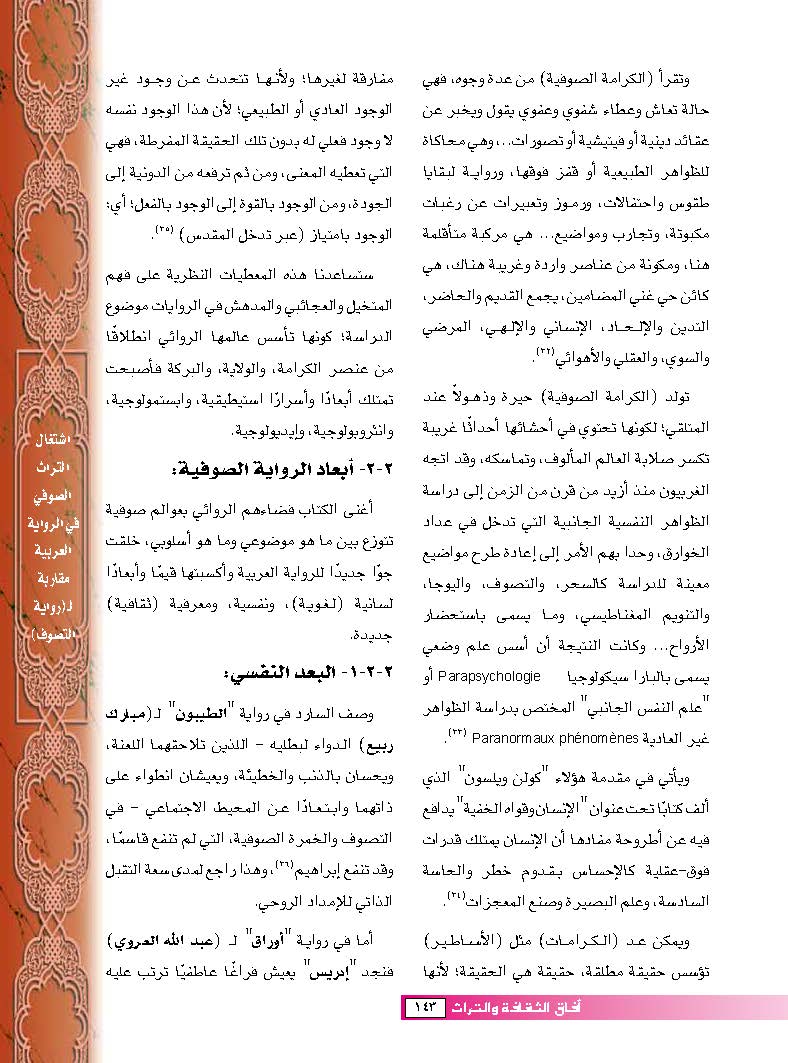 وتقرأ (الكرامة الصوفية) من عدة وجوه، فهي
حالة تعاش وعطاء شفوي وعفوي يقول ويخبر عن
عقائد دينية أو فيتيشية أو تصورات..، وهي محاكاة
للظواهر الطبيعية أو قفز فوقها، ورواية لبقايا
طقوس واحتفالات، ورموز وتعبيرات عن رغبات
مكبوتة، وتجارب ومواضيع... هي مركبة متأقلمة
هنا، ومكونة من عناصر واردة وغريبة هناك، هي
كائن حي غني المضامين، يجمع القديم والحاضر،
التدين والإلـحـاد، الإنساني والإلـهـي، المرضي
والسوي، والعقلي والأهوائي(٣٢).
تولد (الكرامة الصوفية) حيرة وذهـولاً عند
المتلقي؛ لكونها تحتوي في أحشائها أحداثًا غريبة
تكسر صلابة العالم المألوف، وتماسكه، وقد اتجه
الغربيون منذ أزيد من قرن من الزمن إلى دراسة
الظواهر النفسية الجانبية التي تدخل في عداد
الخوارق، وحدا بهم الأمر إلى إعادة طرح مواضيع
معينة للدراسة كالسحر، والتصوف، واليوجا،
والتنويم المغناطيسي، وما يسمى باستحضار
الأرواح... وكانت النتيجة أن أسس علم وضعي
يسمى بالبارا سيكولوجيا Parapsychologie أو
"علم النفس الجانبي" المختص بدراسة الظواهر
غير العادية Paranormaux phénomènes (٣٣).
ويأتي في مقدمة هؤلاء "كولن ويلسون" الذي
ألف كتابًا تحت عنوان "الإنسان وقواه الخفية" يدافع
فيه عن أطروحة مفادها أن الإنسان يمتلك قدرات
فوق-عقلية كالإحساس بقدوم خطر والحاسة
السادسة، وعلم البصيرة وصنع المعجزات(٣٤).
ويمكن عد (الـكـرامـات) مثل (الأسـاطـير)
تؤسس حقيقة مطلقة، حقيقة هي الحقيقة؛ لأنها
مفارقة لغيرها؛ ولأنـهـا تتحدث عـن وجـود غير
الوجود العادي أو الطبيعي؛ لأن هذا الوجود نفسه
لا وجود فعلي له بدون تلك الحقيقة المفرطة، فهي
التي تعطيه المعنى، ومن ثم ترفعه من الدونية إلى
الجودة، ومن الوجود بالقوة إلى الوجود بالفعل؛ أي؛
الوجود بامتياز (عبر تدخل المقدس) (٣٥).
ستساعدنا هذه المعطيات النظرية على فهم
المتخيل والعجائبي والمدهش في الروايات موضوع
الدراسة؛ كونها تأسس عالمها الروائي انطلاقًا
من عنصر الكرامة، والولاية، والبركة فأصبحت
تمتلك أبعادًا وأسرارًا استيطيقية، وابستمولوجية،
وانثروبولوجية، وإيديولوجية.
٢-٢- أبعاد الرواية الصوفية:
أغنى الكتاب فضاءهم الروائي بعوالم صوفية
تتوزع بين ما هو موضوعي وما هو أسلوبي، خلقت
جوًا جديدًا للرواية العربية وأكسبتها قيمًا وأبعادًا
لسانية (لـغـويـة)، ونفسية، ومعرفية (ثقافية)
جديدة.
٢-٢-١- البعد النفسي:
وصف السارد في رواية "الطيبون" لـ(مبارك
ربيع) الـدواء لبطليه - اللذين تلاحقهما اللعنة،
ويحسان بالذنب والخطيئة، ويعيشان انطواء على
ذاتهما وابـتـعـادًا عـن المحيط الاجتماعي - في
التصوف والخمرة الصوفية، التي لم تنفع قاسمًا،
وقد تنفع إبراهيم(٣٦)، وهذا راجع لمدى سعة التقبل
الذاتي للإمداد الروحي.
أما في رواية "أوراق" لـ (عبد الله العروي)
فنجد "إدريس" يعيش فراغًا عاطفيًا ترتب عليه
اشتغال
التراث
الصوفي
في الرواية
العربية
مقاربة
لـ(رواية
التصوف)
آفاق الثقافة والتراث ١٤٣